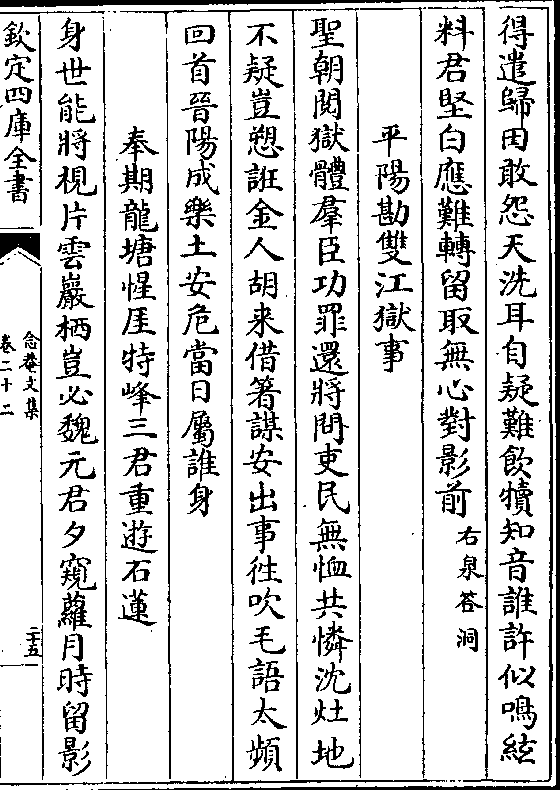 得遣歸田敢怨天洗耳自疑難飲犢知音誰許似鳴絃
料君堅白應難轉留取無心對影前 右泉答洞
平陽勘雙江獄事
聖朝閱獄體羣臣功罪還將問吏民無恤共憐沈灶地
不疑豈愬誑金人胡来借箸謀安出事徃吹毛語太頻
回首晉陽成樂土安危當日屬誰身
奉期龍塘惺厓特峰三君重遊石蓮
身世能將視片雲巖栖豈必魏元君夕窺蘿月時留影
欽定四庫全書
念菴文集
卷二十二
二十五